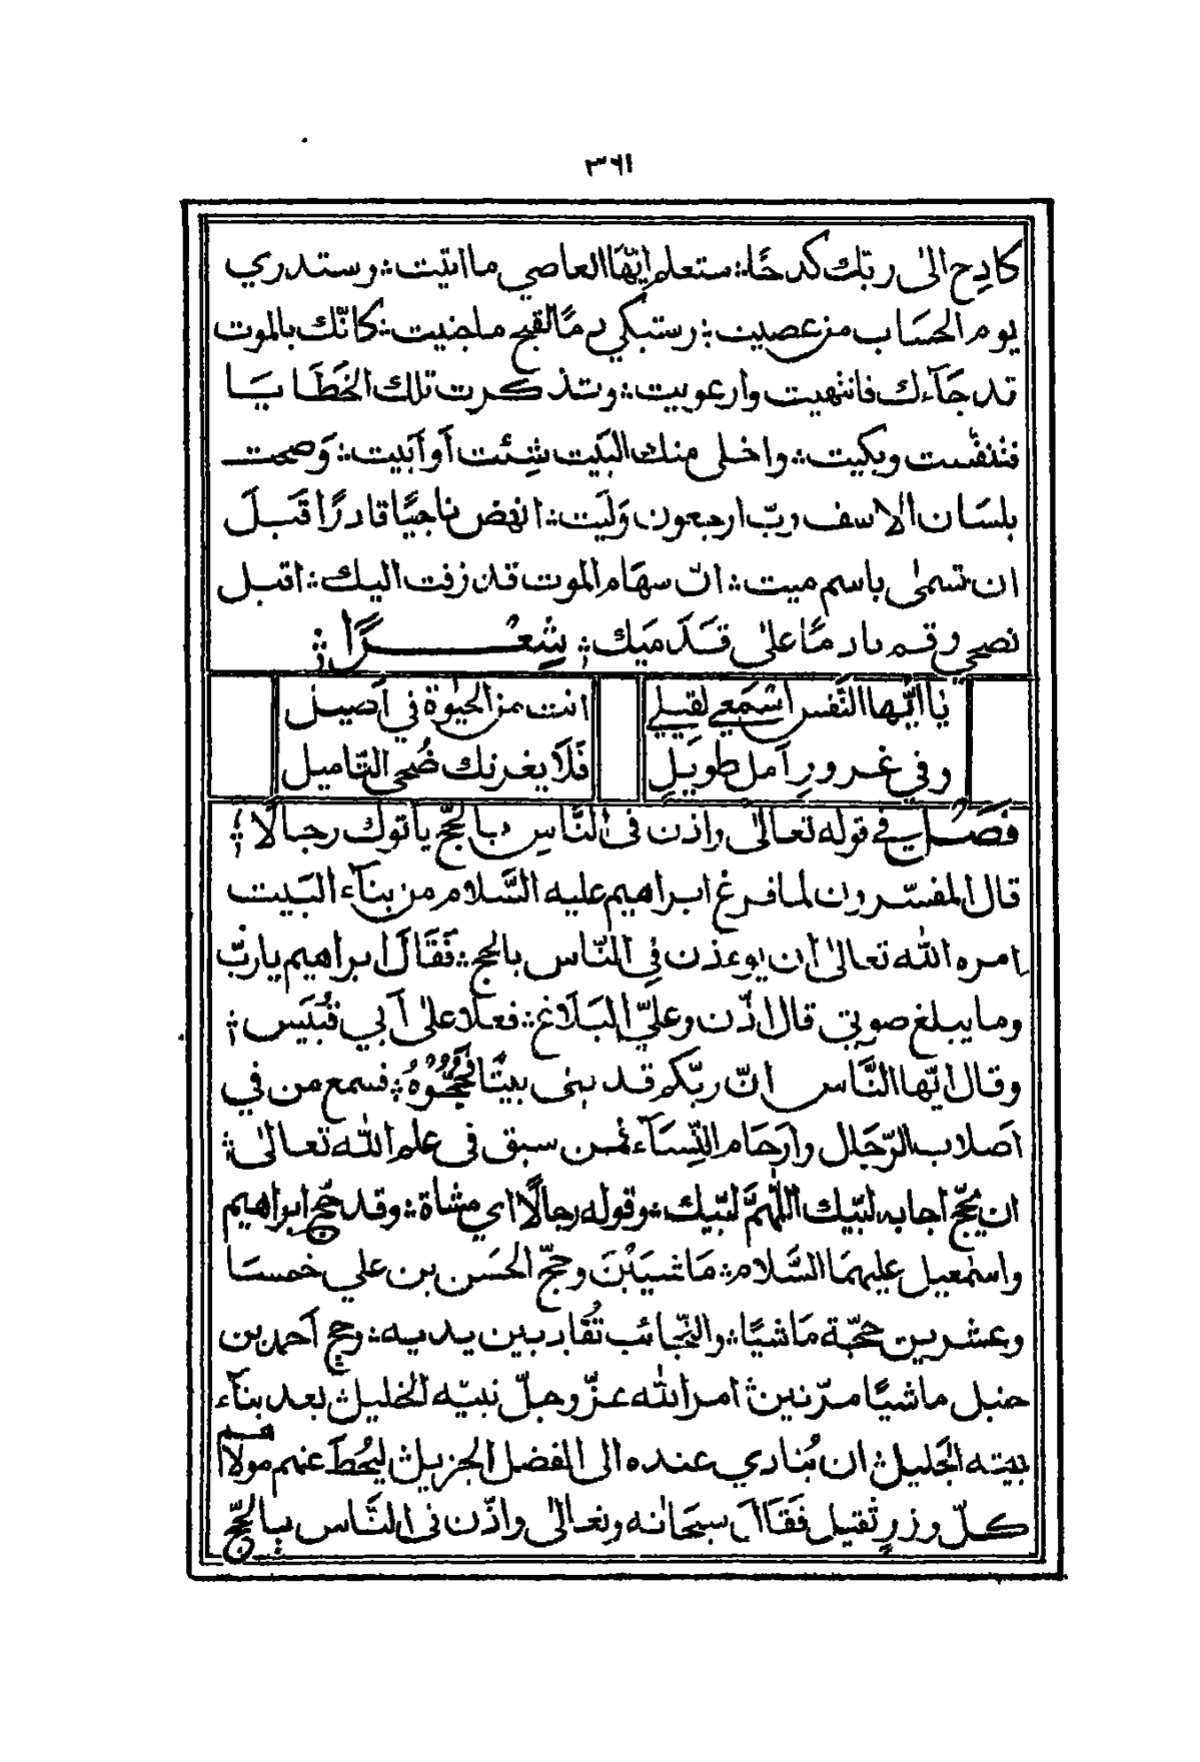 ٣٦١
كادِح الىٰ ربّك كدحًا؞ ستعلم ايّهَا العاصي ما اتيت؞ وستدري
يوم الحسَاب من عصيت؞ وستبكي دمًا لقبح ما جنيت؞ كانّك بالموت
قد جَآءك فانتهيت وارعويت؞ وتذكرت تلك الخَطَايَا
فتنفّست وبكيت؞ واخلى منك البَيت شِئت أَو أَبَيت؞ وَصحت
بلسَان الاسف ربّ ارجعون وَلَيت؞ انهض ناجيًا قادرًا قَبلَ
ان تسمىٰ باسم ميت؞ انّ سهَام الموت قد زفت اليك؞ اقبل
نصحي وقم نادمًا علىٰ قَدَميَك؞ شِعْرًا؞
يَا ايّها النَفس اسْمَعي لقيلي
انت من الحيٰوة في أَصيل
وفي غرورِ أَمل طويلِ
فَلَا يغرنك ضُحى التاميل
فصْل في قوله تعالىٰ واذن في النَّاسِ بالحجّ ياتوك رجالًا؞
قال المفسّرون لما فرغ ابراهيم عليه السَّلام من بنآء البَيت
امره الله تعالىٰ ان يوءذن فِي النّاس بالحج؞ فَقَالَ ابراهيم يا ربّ
وما يبلغ صوتي قال اذّن وعليّ البَلَاغ؞ فعلَا علىٰ أَبي قُبَيَس؞
وقال ايّها النَّاس انّ ربّكم قد بنى بيتًا فَحُجُّوْهُ؞ فسمع من في
اصَلاب الرّجَال وارَحَام النِّسَآء ممن سبق في علم الله تعالىٰ؞
ان يحجّ اجابه لبّيك اللّٰهمَّ لبّيك؞ وقوله رجالًا اي مشاة؞ وقد حجّ ابراهيم
واسمٰعيل عليهمَا السَّلام؞ مَاشيَيْنَ وحجّ الحسَن بن علي خمسَا
وعشرين حجّة مَاشيًا؞ والنّجَائب تُقَاد بين يديه؞ وحج أَحمد بن
حنبل ماشيًا مرّتين؞ امر الله عزّ وجلّ نبيّه الخليل؞ بعد بنآء
بيته الجَليل؞ ان يُنادي عنده الى الفضل الجزيل؞ ليُحطَ عنهم مولَاهم
كلّ وزرٍ ثقيل فَقَالَ سبحَانه وتعالىٰ واذّن في النَّاس بالحجّ